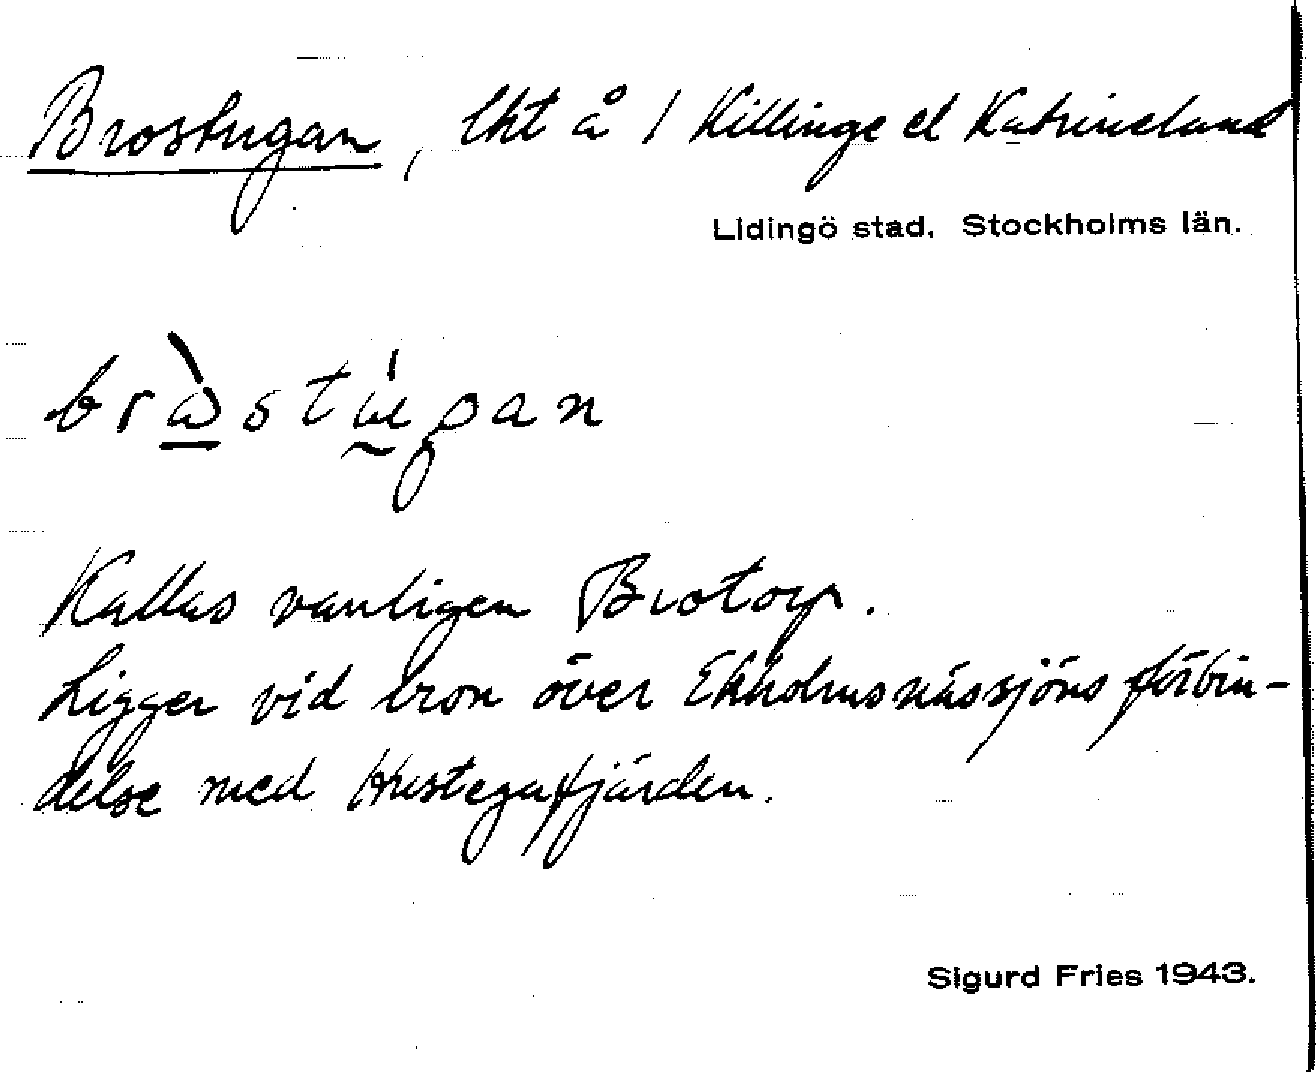 Brostugan, lht å 1 Killinge el Katrineland
Lidingö stad. Stockholms län.
Kallas vanligen Brotorp.
Ligger vid bron över Ekholmsnässjöns förbin-
delse med Hustegafjärden.
Sigurd Fries 1943.